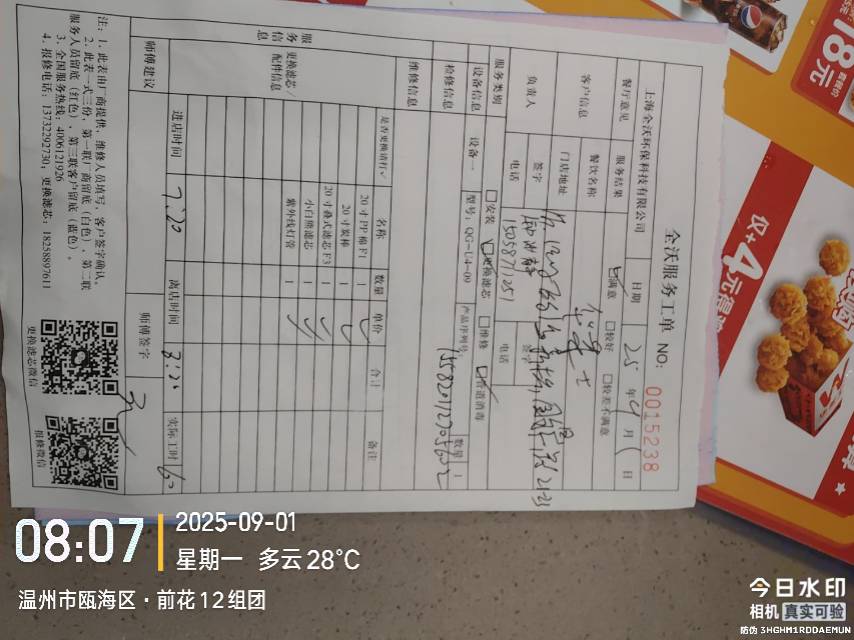 全沃服务工单 NO: 0015238
上海全沃环保科技有限公司 日期 25 年 9 月 1 日
餐厅意见 服务结果 满意 较好 较差不满意
客户信息 餐饮名称
门店地址
负责人 签字 签字
电话 15058711251 电话
服务类别 安装 更换滤芯 维修 管道消毒
设备信息 设备一 型号: QG-U4-09 产品序列号 数量 1
检修信息
维修信息
服务信息 更换滤芯/配件信息 是否更换请打√ 名称 数量 单价 合计 备注
20寸PP棉F1 1
20寸炭棒 1
20寸叠式滤芯F3 1
小白熊滤芯 1
紫外线灯管 1
师傅建议
进店时间 7:20 离店时间 实际工时 60
师傅签字
注: 1. 此表由厂商提供, 维修人员填写, 客户签字确认。
2. 此表一式三份, 第一联厂商留底 (白色), 第二联
服务人员留底 (红色), 第三联客户留底 (蓝色)。
3. 全国服务热线: 4006121926
4. 报修电话: 13732292730, 更换滤芯: 18258897611
更换滤芯微信
报修微信
18元
仅+4元得
pepsi
08:07
2025-09-01
星期一 多云 28°C
温州市瓯海区·前花12组团
今日水印
相机 真实可验
防伪 3HGHM1RDDAEMUN